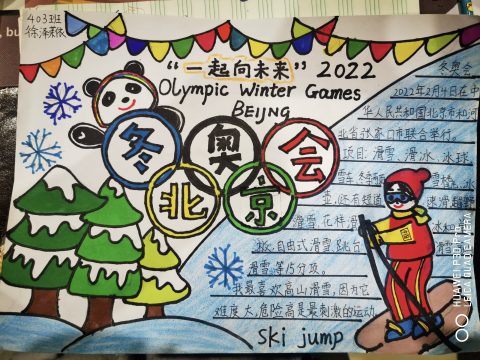 403班
“一起向未来” 2022
Olympic Winter Games
BEIJNG
冬奥会
北京
冬奥会
2022年2月4日在中
华人民共和国北京市和河
北省张家口市联合举行。
项目:滑雪、滑冰、冰球
雪车、
还有短道 速滑越野
滑雪、花样滑
自由式滑雪、跳台
滑雪等15分项。
我最喜欢高山滑雪,因为它
难度大,危险高是最刺激的运动
Ski jump
HUAWEI P30 PRO
LEICA QUAD CAMERA